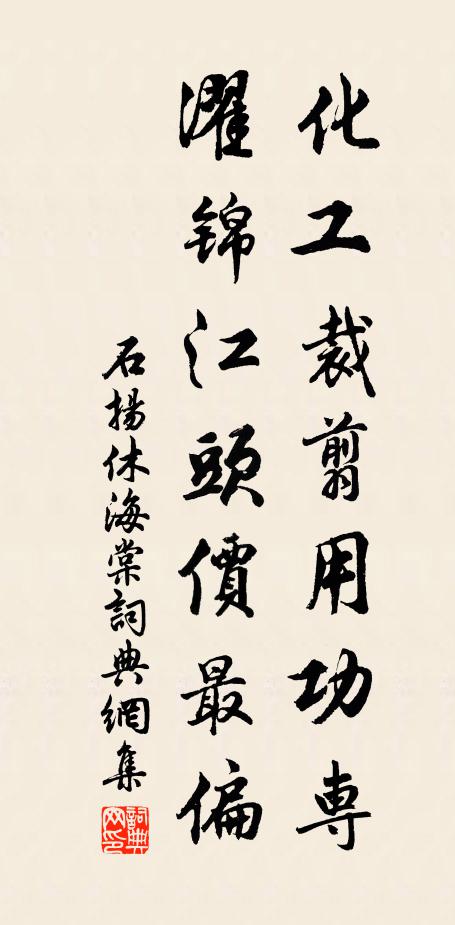 化工裁翦用功專
濯锦江頭價最偏
石揚休海棠詞典網集
詞典网印